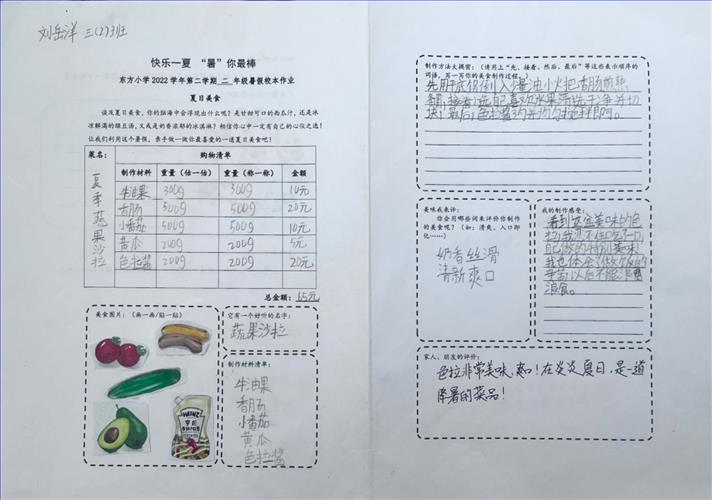 刘岳洋 三(2)班
快乐一夏 “暑”你最棒
东方小学2022学年第二学期 二 年级暑假校本作业
夏日美食
谈及夏日美食，你的脑海中会浮现出什么呢？是甘甜可口的西瓜汁，还是冰
凉解渴的绿豆汤，又或是奶香浓郁的冰淇淋？相信你心中一定有自己的心仪之选！
让我们利用这个暑假，亲手做一做你最喜爱的一道夏日美食吧！
菜名： 购物清单
夏季蔬果沙拉
制作材料 重量（估一估） 重量（称一称） 金额
牛油果 300g 300g 10元
香肠 500g 500g 20元
小番茄 500g 500g 10元
黄瓜 200g 200g 5元
色拉酱 200g 200g 20元
总金额： 65元
美食图片：（画一画/贴一贴）
HEINZ
它有一个好听的名字：
蔬果沙拉
制作材料清单：
牛油果
香肠
小番茄
黄瓜
色拉酱
制作方法大揭密：（请用上“先、接着、然后、最后”等这些表示顺序的
词语，写一写你的美食制作过程。）
先用平底锅倒入
小火把香肠煎熟
接着
喜欢水果清洗干净并切
块！最后，色拉酱
美味我来评：
你会用哪些词来评价你制作
的美食呢？（如：清爽、入口即
化……）
奶香丝滑
清新爽口
我的制作感受：
看到
美味的色
拉，我忍不住吃了一口，
自己做的特别美味！
我也体会了做饭的
辛苦，以后不能浪费
粮食。
家人、朋友的评价：
色拉非常美味、爽口！在炎炎夏日，是一道
降暑的菜品！